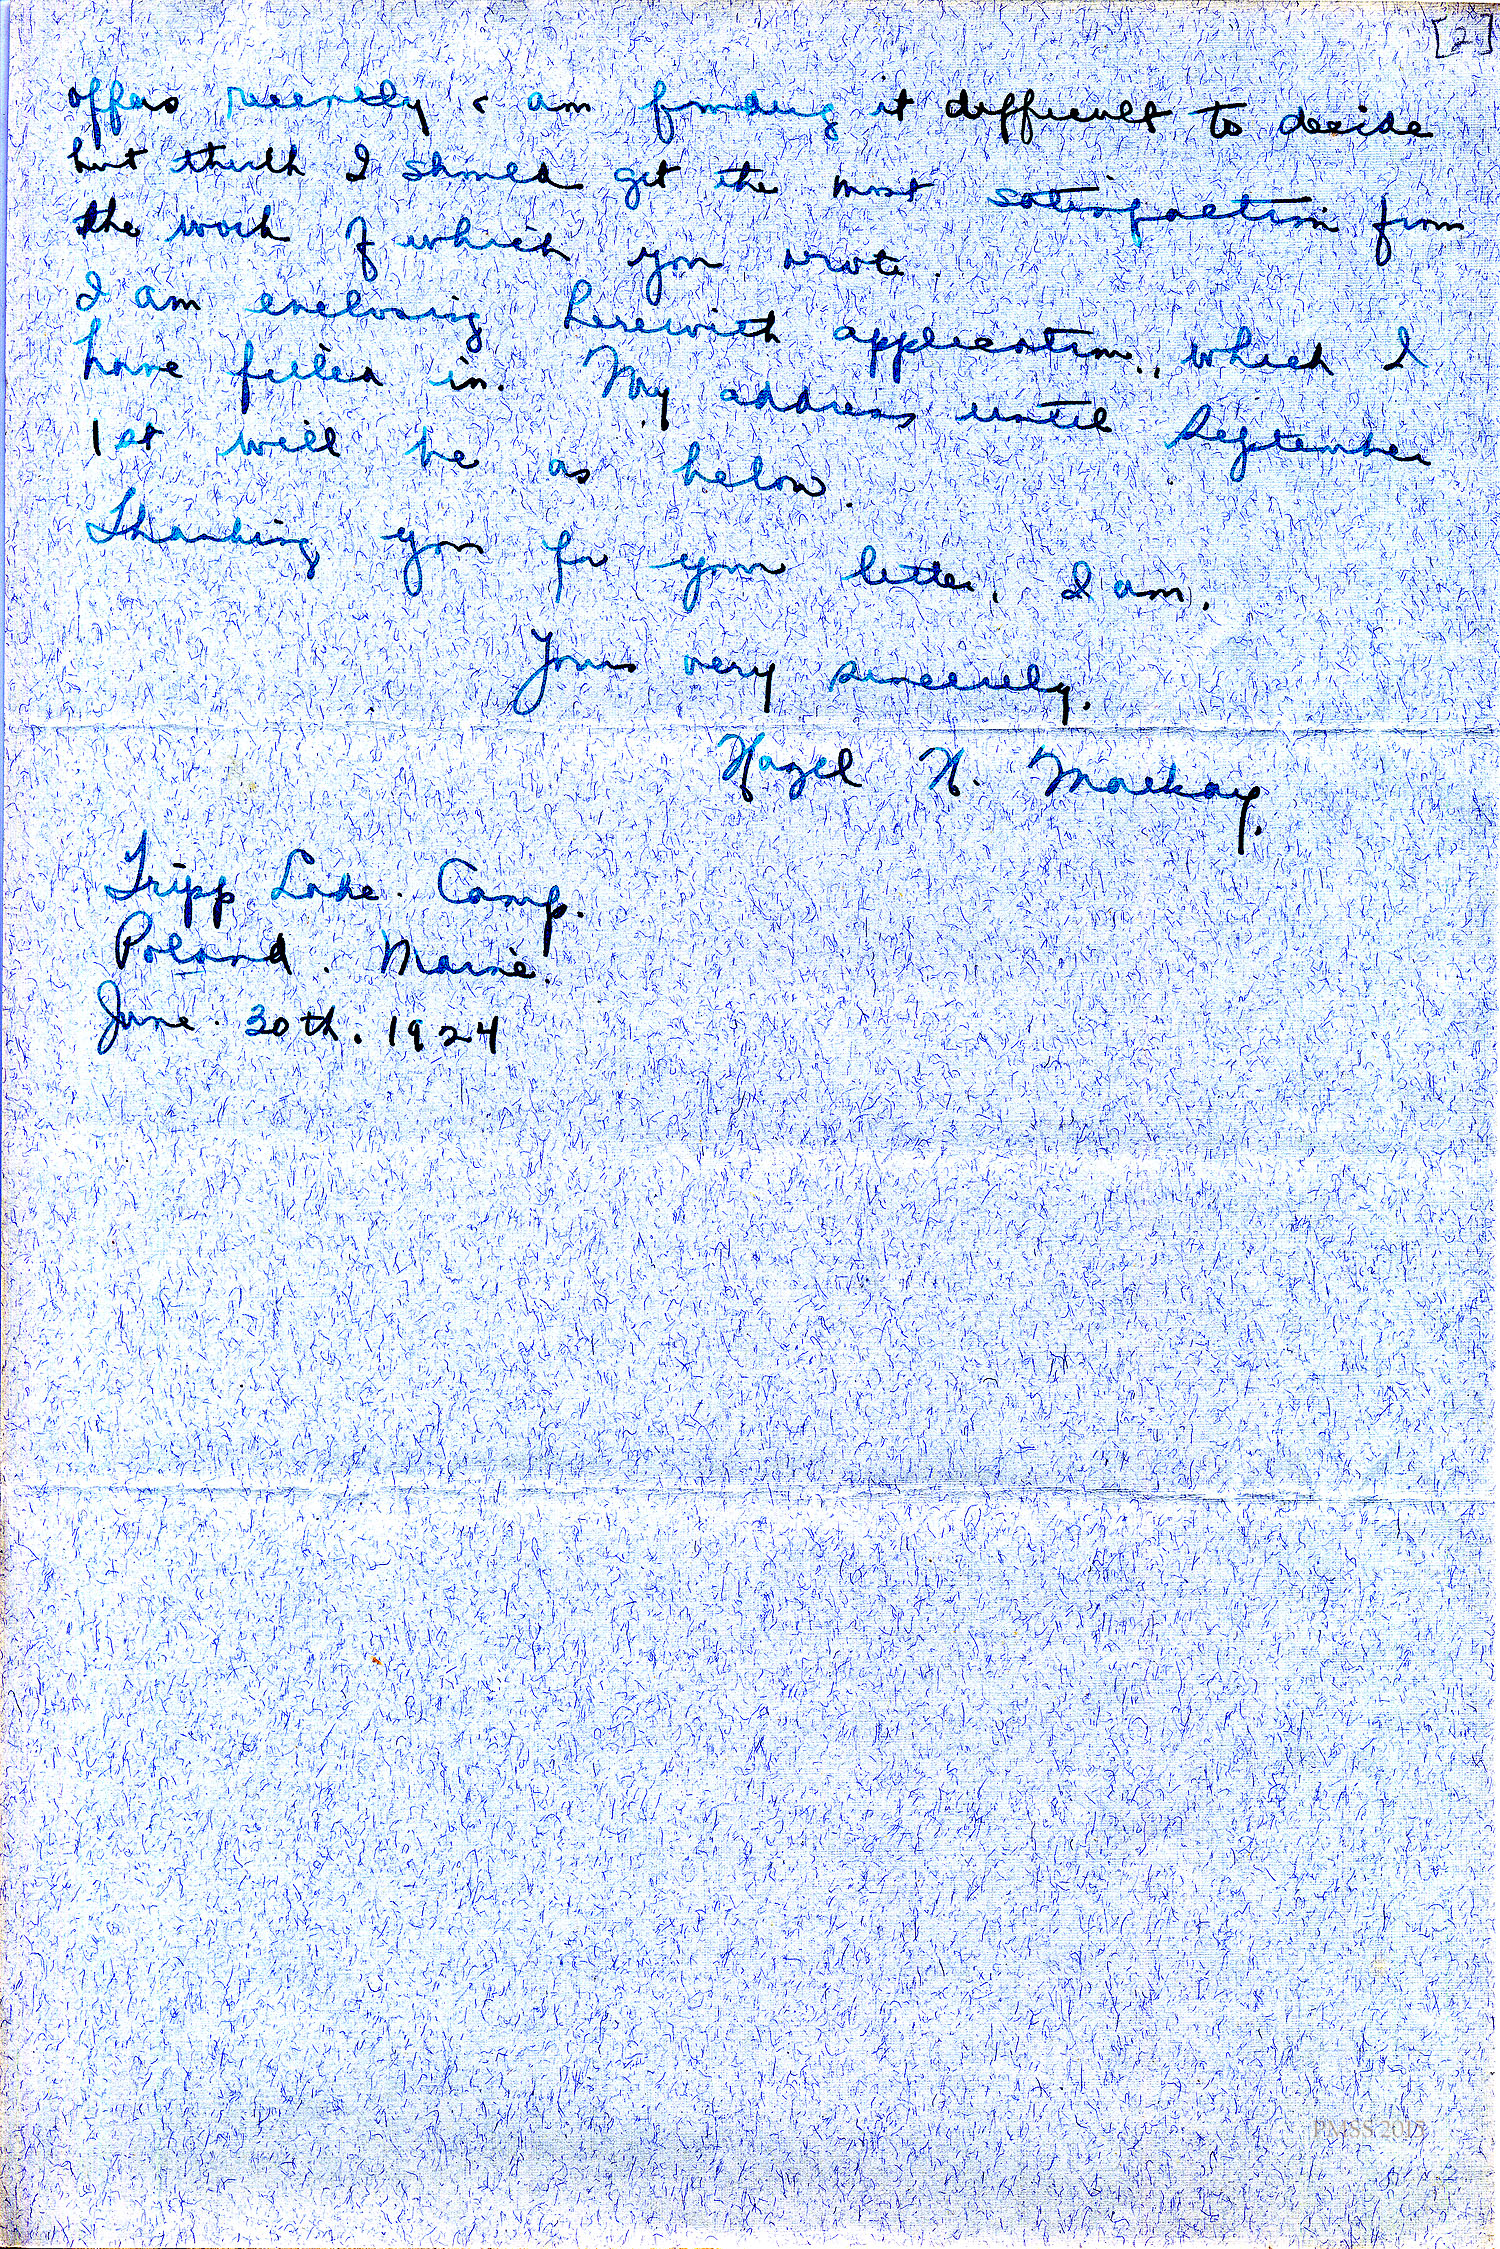 [2]
offers recently & am finding it difficult to decide
but think I should get the most satisfaction from
the work of which you wrote.
I am enclosing herewith application, which I
have filled in. My address until September
1st will be as below.
Thanking you for your letter, I am,
Yours very sincerely,
Hazel N. Mackay.
Tripp Lake Camp.
Poland. Maine.
June 30th. 1924
PMSS 2015